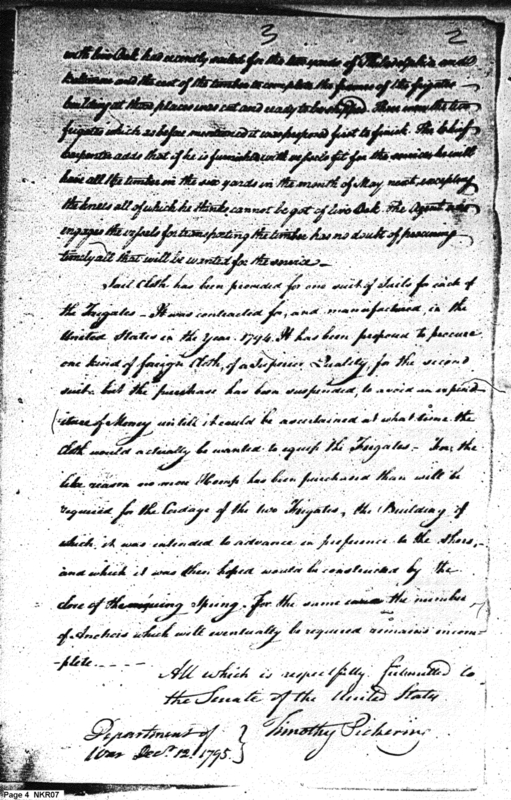 3 2
with live Oak has recently sailed for the two yards of Philadelphia and
Baltimore and the rest of the timber to complete the frames of the frigates
building at those places was cut and ready to be shipped. These were the two
frigates which as before mentioned it was proposed first to finish. The Chief
carpenter adds that if he is furnished with vessels fit for the services he will
have all the timber in the six yards in the month of May next, excepting
the knees all of which he thinks cannot be got of live Oak. The Agent who
engages the vessels for transporting the timber has no doubt of procuring
timely all that will be wanted for the service —
Sail Cloth has been provided for one suit of Sails for each of
the Frigates — It was contracted for, and manufactured, in the
United States in the Year 1794. It has been proposed to procure
one kind of foreign Cloth, of a Superior Quality, for the second
suit. but the purchase has been suspended, to avoid an expend
iture of Money untill it could be ascertained at what time the
Cloth would actually be wanted to equip the Frigates — For the
like reason no more Hemp has been purchased than will be
required for the Cordage of the two Frigates, the Building of
which it was intended to advance in preference to the others, —
and which it was then hoped would be constructed by the
close of the ensuing Spring. For the same the number
of Anchors which will eventually be required remains incom-
plete. - - - -
All which is respectfully submitted to
the Senate of the United States
Department of } Timothy Pickering
War Decr. 12. 1795. }
Page 4 NKR07